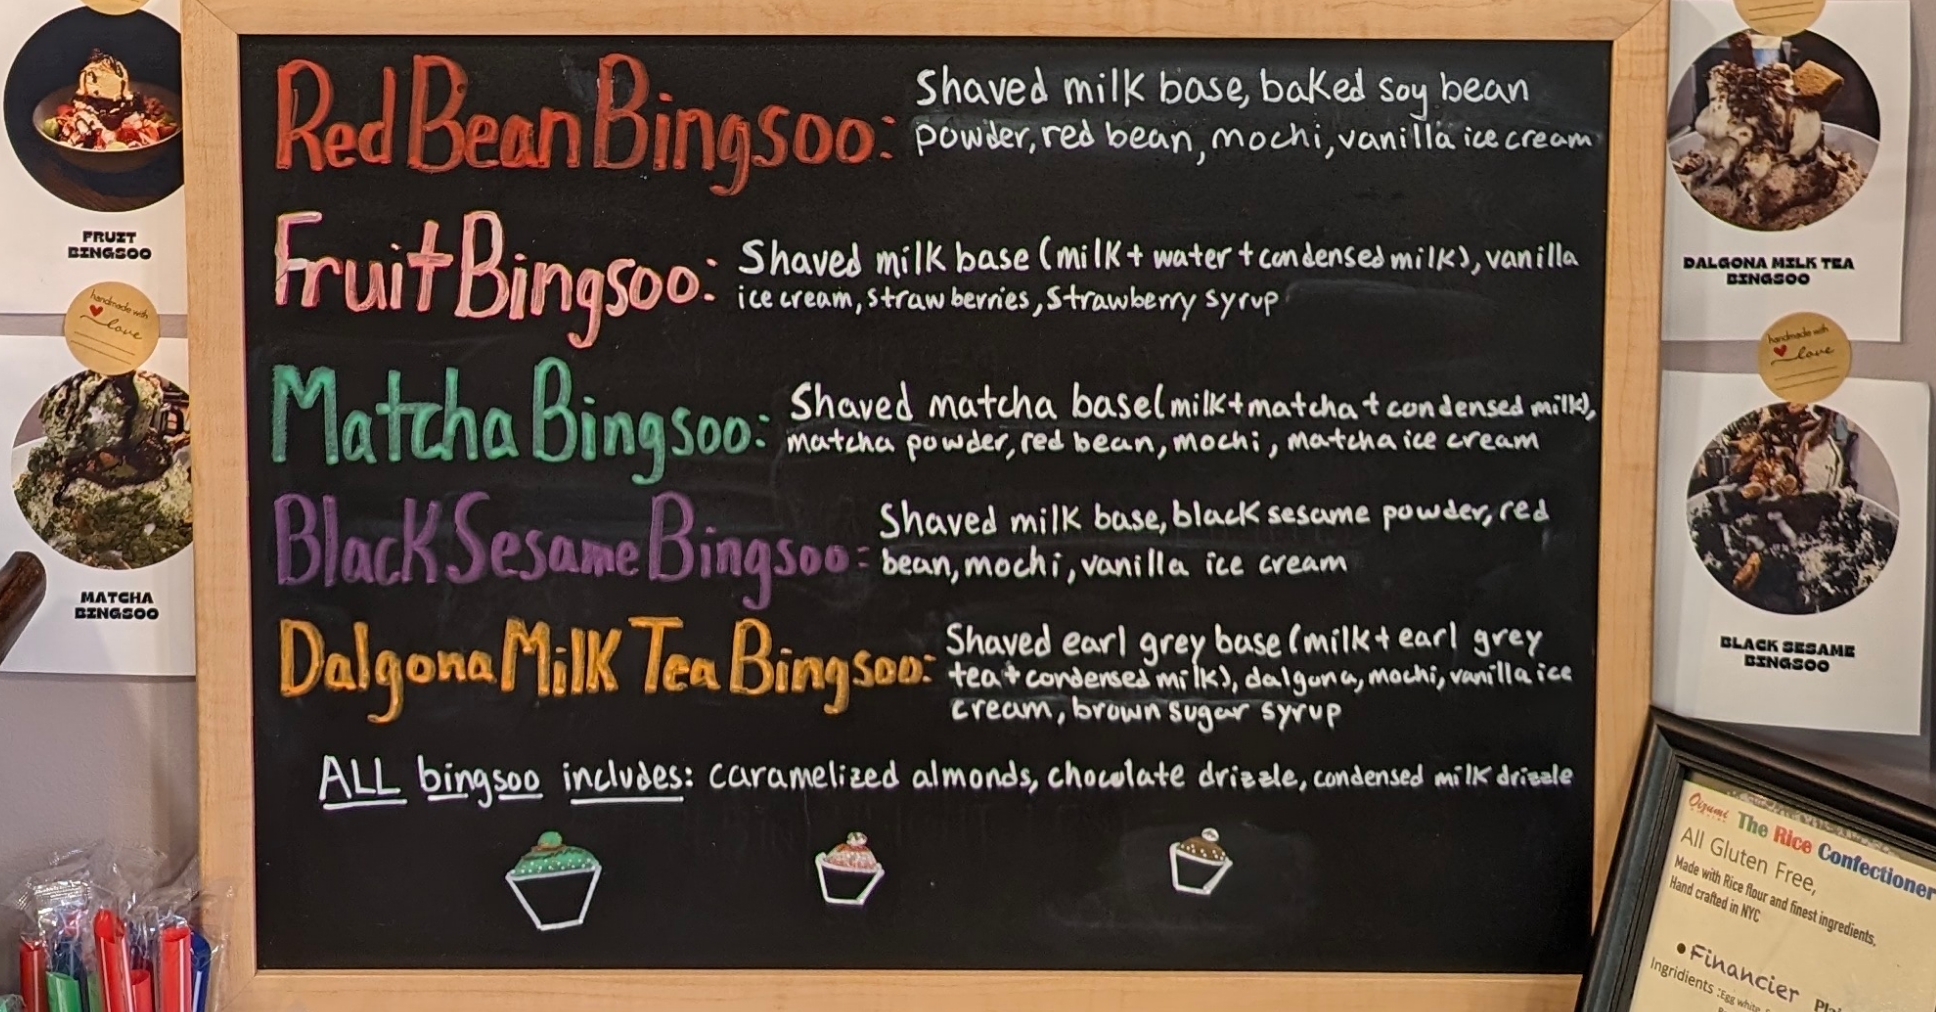 Red Bean Bingsoo: Shaved milk base, baked soy bean
powder, red bean, mochi, vanilla ice cream
Fruit Bingsoo: Shaved milk base (milk + water + condensed milk), vanilla
ice cream, strawberries, strawberry syrup
Matcha Bingsoo: Shaved matcha base (milk + matcha + condensed milk),
matcha powder, red bean, mochi, matcha ice cream
Black Sesame Bingsoo: Shaved milk base, black sesame powder, red
bean, mochi, vanilla ice cream
Dalgona Milk Tea Bingsoo: Shaved earl grey base (milk + earl grey
tea + condensed milk), dalgona, mochi, vanilla ice
cream, brown sugar syrup
ALL bingsoo includes: caramelized almonds, chocolate drizzle, condensed milk drizzle
FRUIT
BINGSOO
handmade with
love
MATCHA
BINGSOO
DALGONA MILK TEA
BINGSOO
handmade with
love
BLACK SESAME
BINGSOO
Oizumi
The Rice Confectioner
All Gluten Free,
Made with Rice flour and finest ingredients,
Hand crafted in NYC
• Financier
Ingridients : Egg white